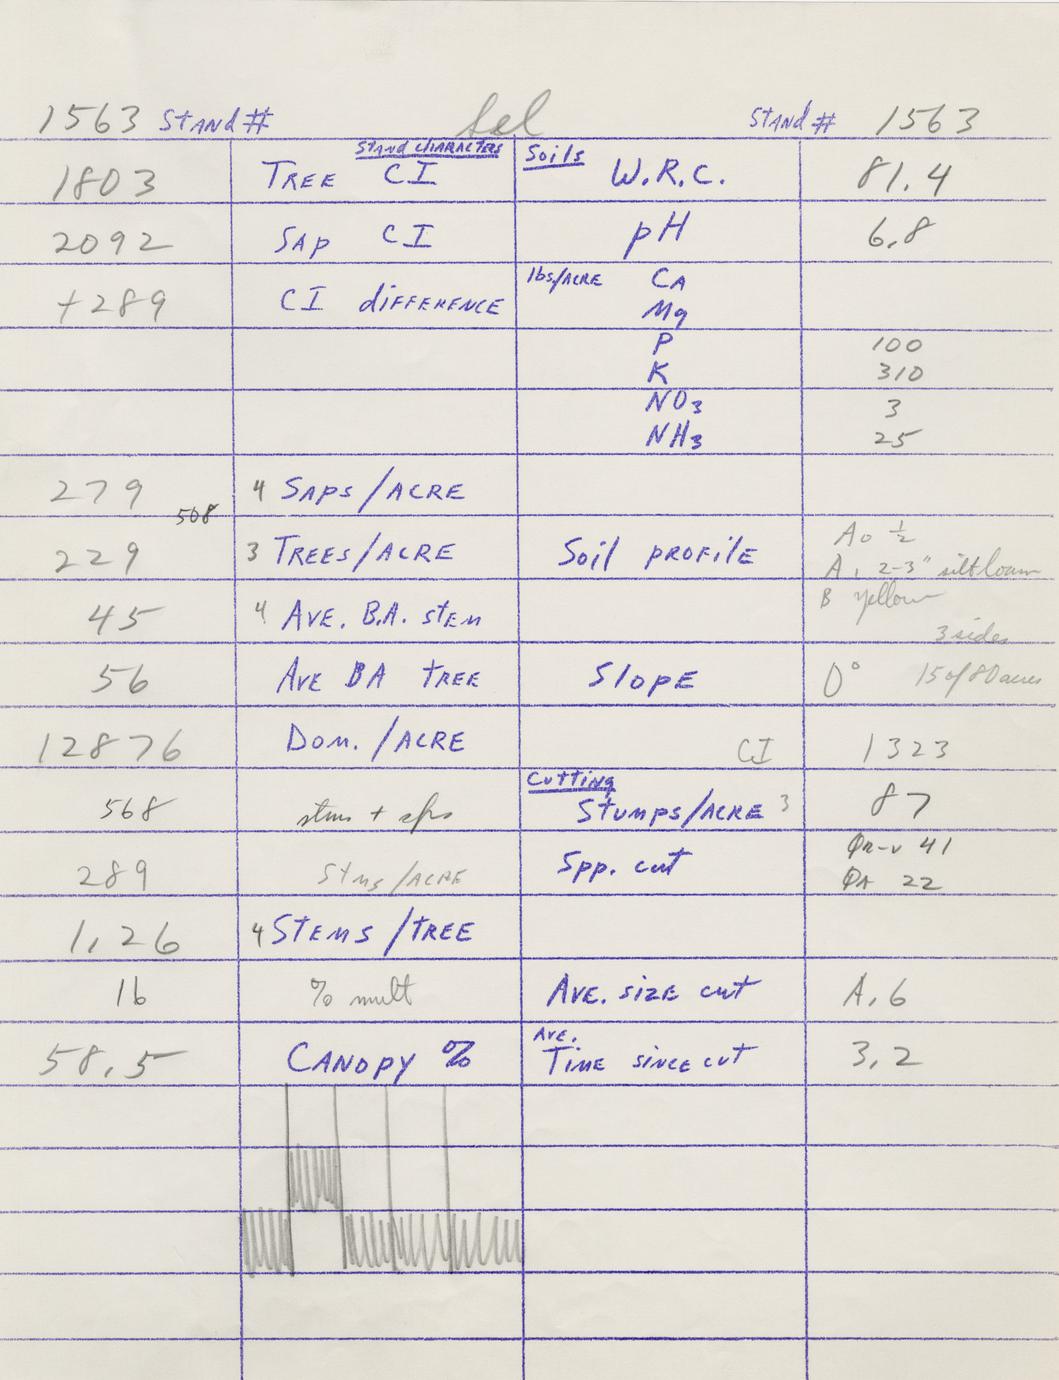 1563 Stand # Sel Stand # 1563
Stand Characters Soils
1803 Tree CI W.R.C. 81.4
2092 Sap CI pH 6.8
+289 CI difference lbs/Acre Ca
Mg
P 100
K 310
NO3 3
NH3 25
279 4 Saps/Acre
508
229 3 Trees/Acre Soil profile Ao ½
A1 2-3" silt loam
B yellow
45 4 Ave. B.A. stem
3 sides
56 Ave BA tree Slope 0° 15 of 80 acres
12876 Dom./Acre CI 1323
Cutting
568 stms + sps Stumps/Acre 3 87
289 Stms/Acre Spp. cut QR-v 41
QA 22
1.26 4 Stems/tree
16 % mult Ave. size cut A.6
58.5 Canopy % Ave. Time since cut 3.2